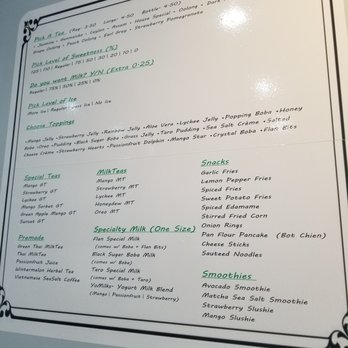 Pick A Tea (Reg: 3.50 Large: 4.50 Bottle: 4.50)
• Jasmine • Genmaicha • Ceylon • Assam • House Special • Oolong • Dark
Green Oolong • Peach Oolong • Earl Grey • Strawberry Pomegranate
Pick Level of Sweetness (%)
125 | 110 | Regular | 75 | 50 | 30 | 20 | 10 | 0
Do you want Milk? Y/N (Extra 0.25)
Regular | 75% | 50% | 25% | 0%
Pick Level of Ice
More Ice | Regular | Less Ice | No Ice
Choose Toppings
•Mango Jelly •Strawberry Jelly •Rainbow Jelly •Aloe Vera •Lychee Jelly •Popping Boba •Honey
Boba •Oreo •Pudding •Black Sugar Boba •Grass Jelly •Taro Pudding •Sea Salt Crème •Salted
Cheese Crème •Strawberry Hearts •Passionfruit Dolphin •Mango Star •Crystal Boba •Flan Bits
Special Teas
Mango GT
Strawberry GT
Lychee GT
Mango Sunset GT
Green Apple Mango GT
Sunset GT
MilkTeas
Mango MT
Strawberry MT
Lychee MT
Honeydew MT
Oreo MT
Snacks
Garlic Fries
Lemon Pepper Fries
Spiced Fries
Sweet Potato Fries
Spiced Edamame
Stirred Fried Corn
Onion Rings
Pan Flour Pancake (Bot Chien)
Cheese Sticks
Sauteed Noodles
Premade
Green Thai MilkTea
Thai MilkTea
Passionfruit Juice
Wintermelon Herbal Tea
Vietnamese SeaSalt Coffee
Specialty Milk (One Size)
Flan Special Milk
(comes w/ Boba + Flan Bits)
Black Sugar Boba Milk
(comes w/ Boba)
Taro Special Milk
(comes w/ Boba + Taro)
YoMilky- Yogurt Milk Blend
(Mango | Passionfruit | Strawberry)
Smoothies
Avocado Smoothie
Matcha Sea Salt Smoothie
Strawberry Slushie
Mango Slushie